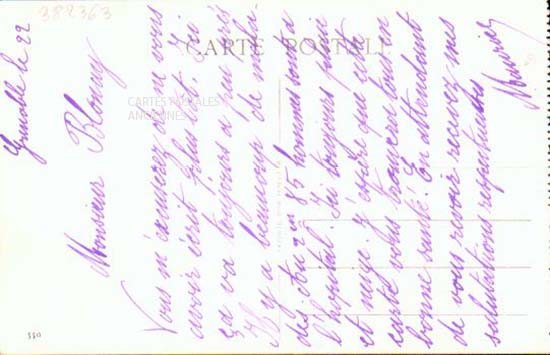 382363
CARTE POSTALE
CARTES POSTALES
ANCIENNES
Grenoble le 22
Monsieur Blonay
Vous m'excuserez de ne vous
avoir écrit plus tôt, Ici
ça va toujours à peu près
Il y a beaucoup de
des 85 hommes sont à
l'hôpital. Ici toujours pluie
et neige. J'espère que cette
carte vous trouvera tous en
bonne santé. En attendant
de vous revoir recevez mes
salutations respectueuses